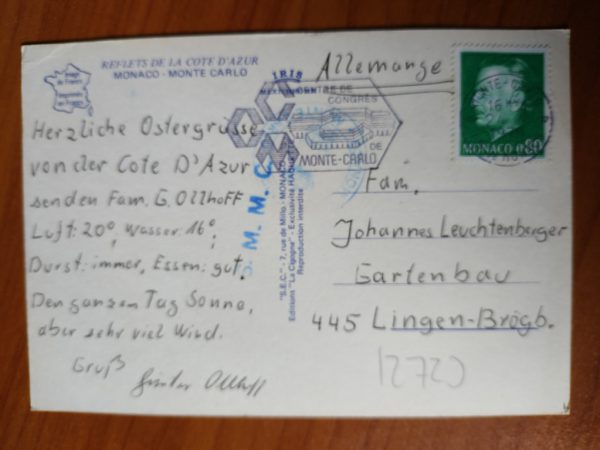 REFLETS DE LA COTE D'AZUR
MONACO - MONTE CARLO
IRIS
Image
de France
Imprimée
en France
Allemange
CENTRE DE
CONGRÈS
DE
MONTE-CARLO
MONACO 0,80
Herzliche Ostergrüsse
von der Cote D'Azur
senden Fam. G. Ollhoff
Luft: 20°, Wasser 16°,
Durst: immer, Essen: gut.
Den ganzen Tag Sonne,
aber sehr viel Wind.
Gruß
Günter Ollhoff
M. M. C
"S.E.C." - 7, rue de Millo - MONACO
Editions "La Cigogne" - Exclusivité HACHETTE
Reproduction interdite
Fam.
Johannes Leuchtenberger
Gartenbau
445 Lingen-Brögb.
12720